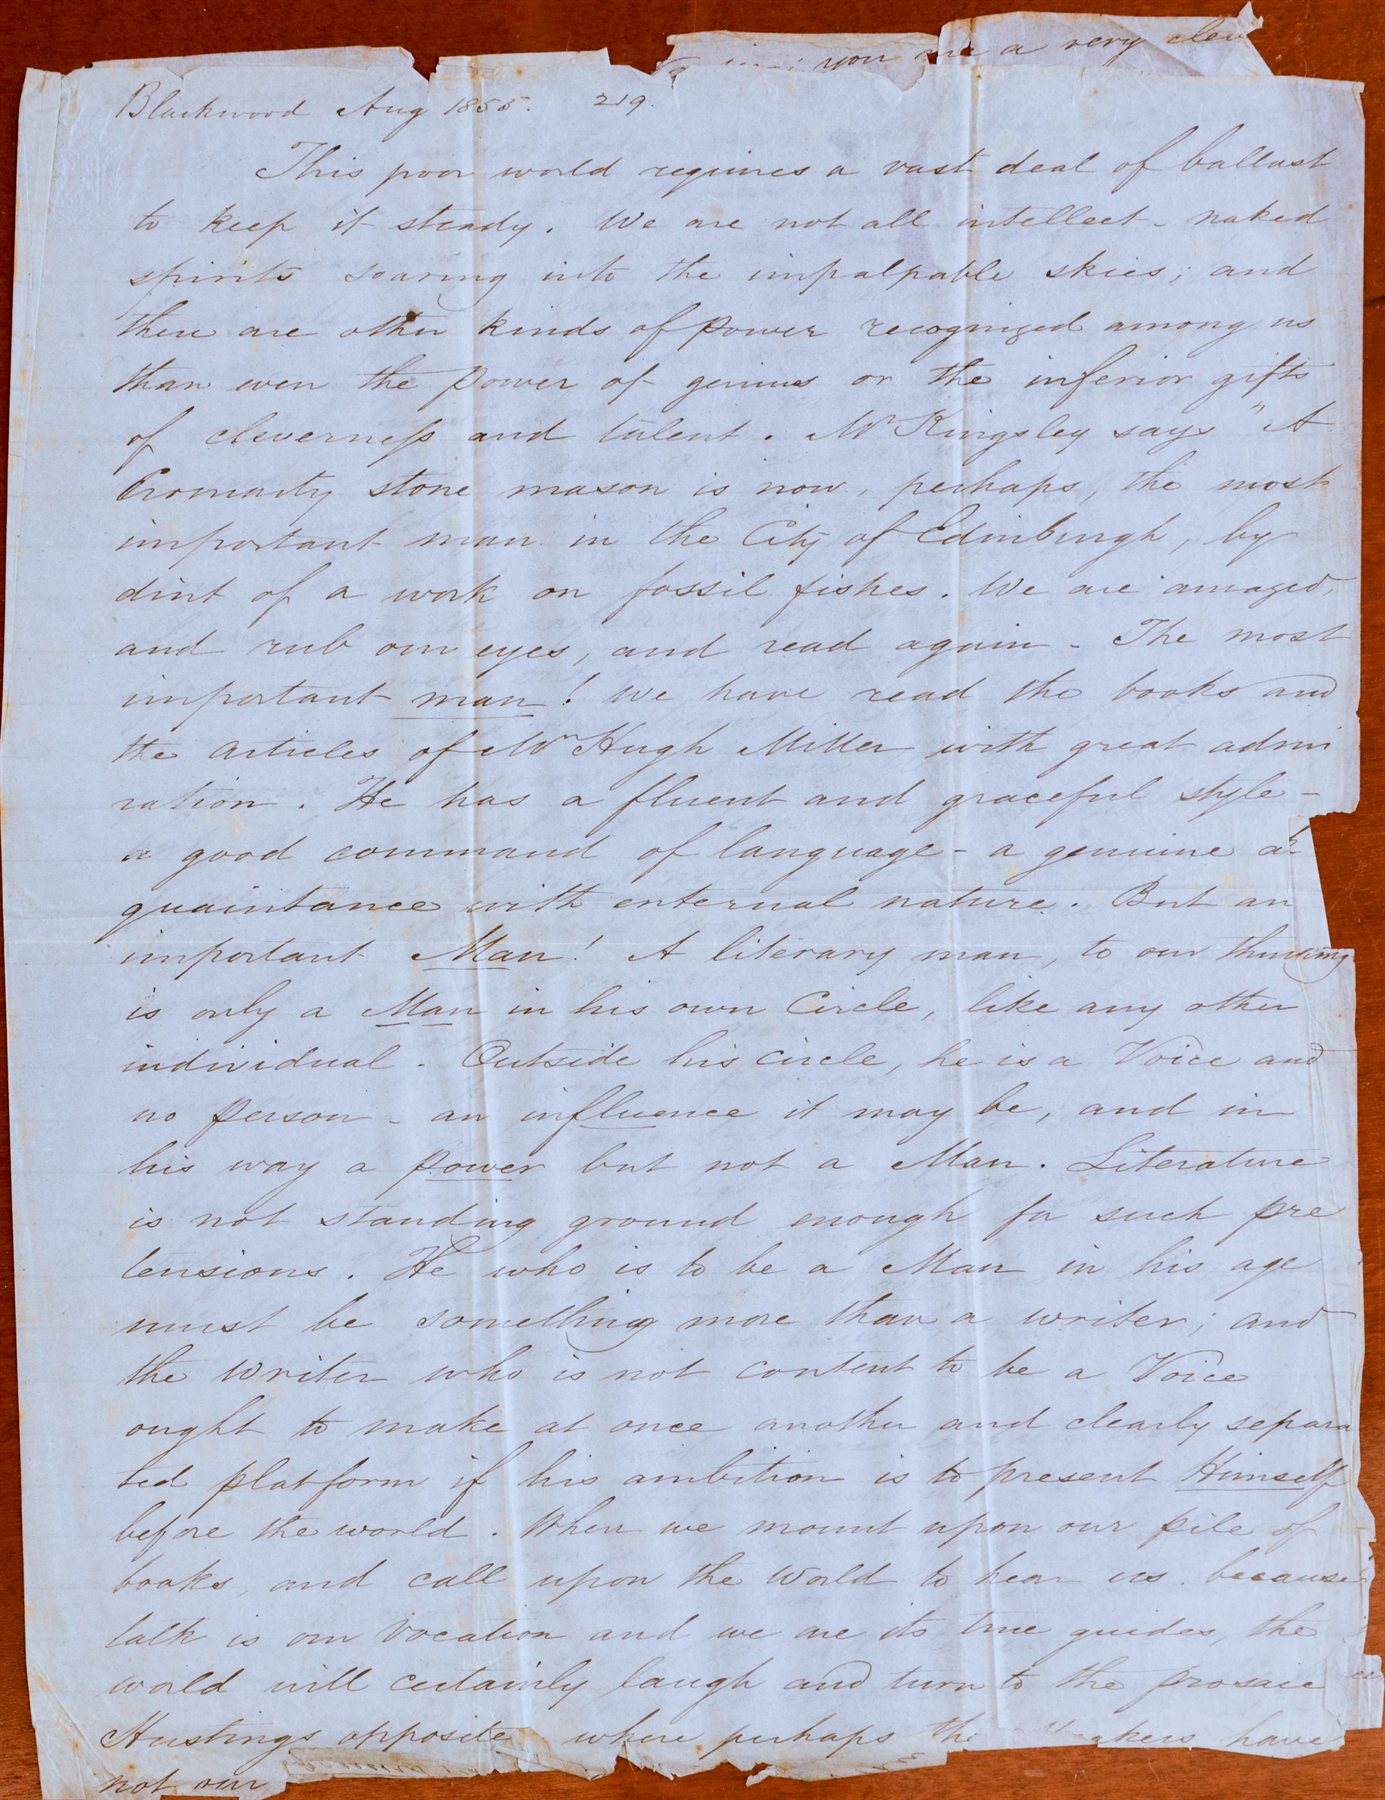 you are a very clev
Blackwood Aug 1855. 219.
This poor world requires a vast deal of ballast
to keep it steady. We are not all intellect - naked
spirits soaring into the impalpable skies; and
there are other kinds of power recognized among us
than even the power of genius or the inferior gifts
of cleverness and talent. Mr Kingsley says "A
Cromarty stone mason is now, perhaps, the most
important man in the City of Edinburgh, by
dint of a work on fossil fishes. We are amazed,
and rub our eyes, and read again - The most
important man! We have read the books and
the articles of Mr Hugh Miller with great admi
ration. He has a fluent and graceful style -
a good command of language - a genuine ac-
quaintance with external nature. But an
important Man! A literary man, to our thinking
is only a Man in his own Circle, like any other
individual. Outside his circle, he is a Voice and
no person - an influence it may be, and in
his way a power but not a Man. Literature
is not standing ground enough for such pre
tensions. He who is to be a Man in his age
must be something more than a writer; and
the writer who is not content to be a Voice
ought to make at once another and clearly separa
ted platform if his ambition is to present Himself
before the world. When we mount upon our pile of
books and call upon the World to hear us because
talk is our vocation and we are its true guides, the
world will certainly laugh and turn to the prosaic
Hustings opposite where perhaps the akers have
not our